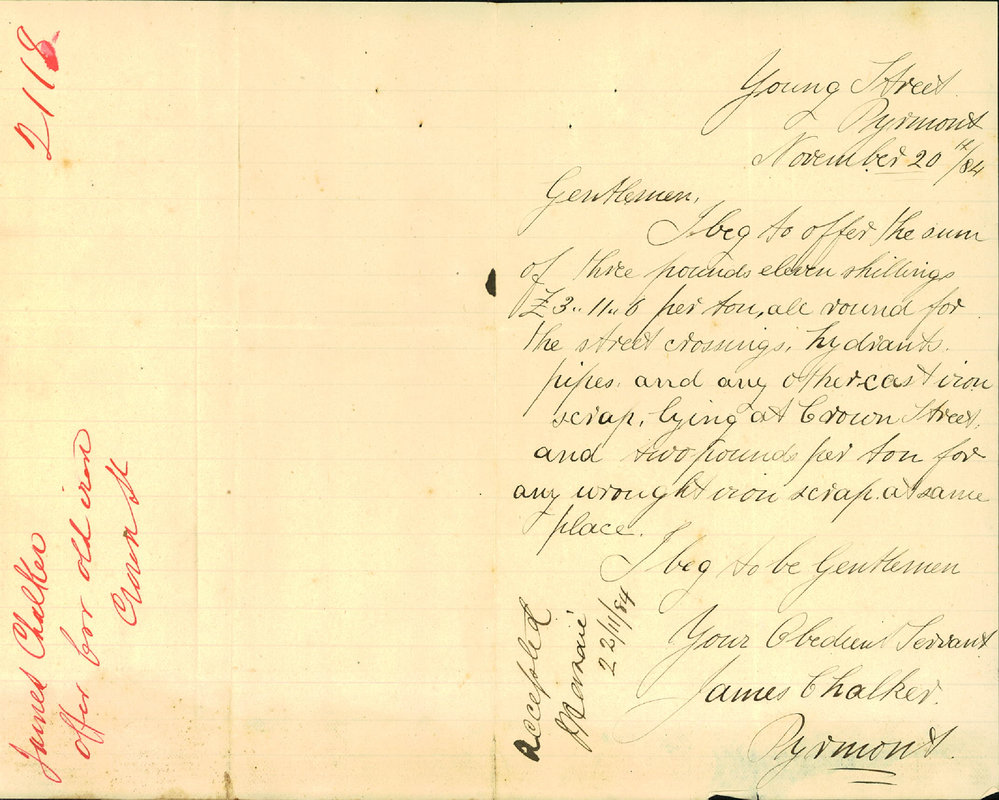 2118
James Chalker
offer for old iron
Crown St
Young Street
Pyrmont
November 20th/84
Gentlemen,
I beg to offer the sum
of three pounds eleven shillings
£3..11..6 per ton, all round for
the street crossings, hydrants.
pipes. and any other cast iron
scrap, lying at Crown Street,
and two pounds per ton for
any wrought iron scrap at same
place.
I beg to be Gentlemen
Your Obedient Servant
James Chalker.
Pyrmont.
Accepted
22/11/84